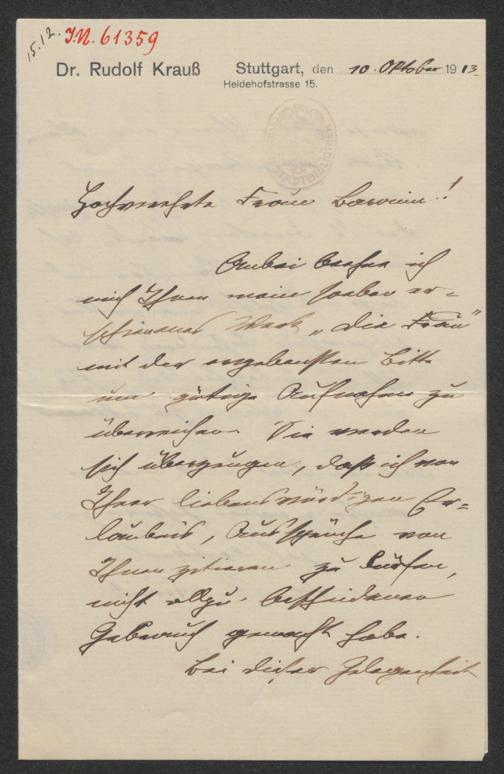 15.12. I.N. 61359
Dr. Rudolf Krauß Stuttgart, den 10. Oktober 1913.
Heidehofstrasse 15.
Hochverehrte Frau Baronin!
Anbei beehre ich
mich Ihnen mein soeber er-
schienenes Werk „Die Frau“
mit der ergebensten Bitte
um gütige Aufnahme zu
überreichen. Sie werden
sich überzeugen, daß ich von
Ihrer liebenswürdigen Er-
laubnis, Aussprüche von
Ihnen zitieren zu dürfen,
nicht allzu bescheidenen
Gebrauch gemacht habe.
Bei dieser Gelegenheit